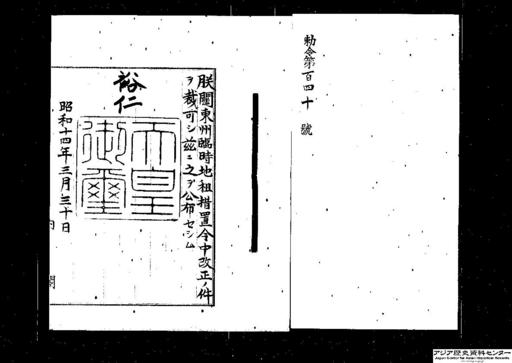 勅令第百四十號
朕關東州臨時地租措置令中改正ノ件
ヲ裁可シ茲ニ之ヲ公布セシム
裕仁
天皇
御璽
昭和十四年三月三十日
内閣
アジア歴史資料センター
Japan Center for Asian Historical Records